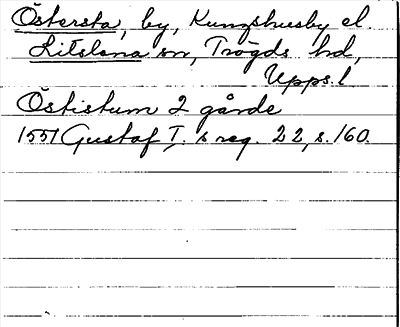 Östersta, by, Kungshusby el.
Litslena sn, Trögds hd,
Upps. l
Östistum 2 gårde
1551 Gustaf I. s reg. 22, s. 160.